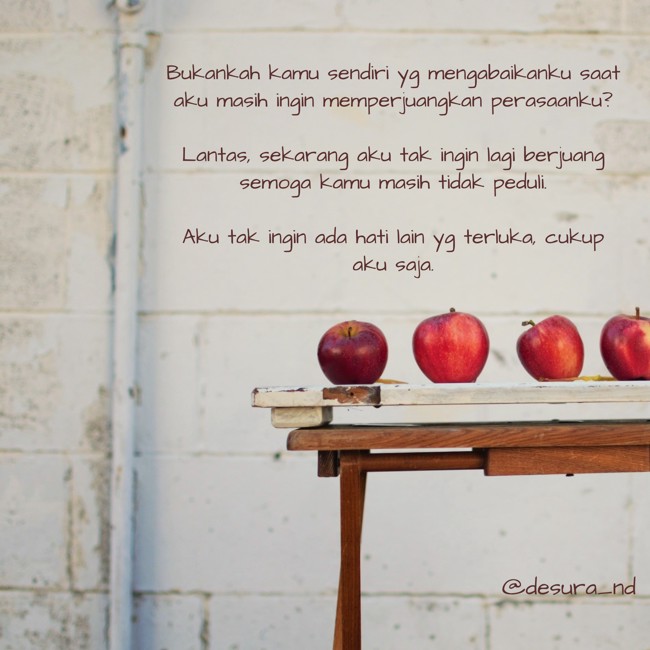 Bukankah kamu sendiri yg mengabaikanku saat
aku masih ingin memperjuangkan perasaanku?
Lantas, sekarang aku tak ingin lagi berjuang
semoga kamu masih tidak peduli.
Aku tak ingin ada hati lain yg terluka, cukup
aku saja.
@desura_nd